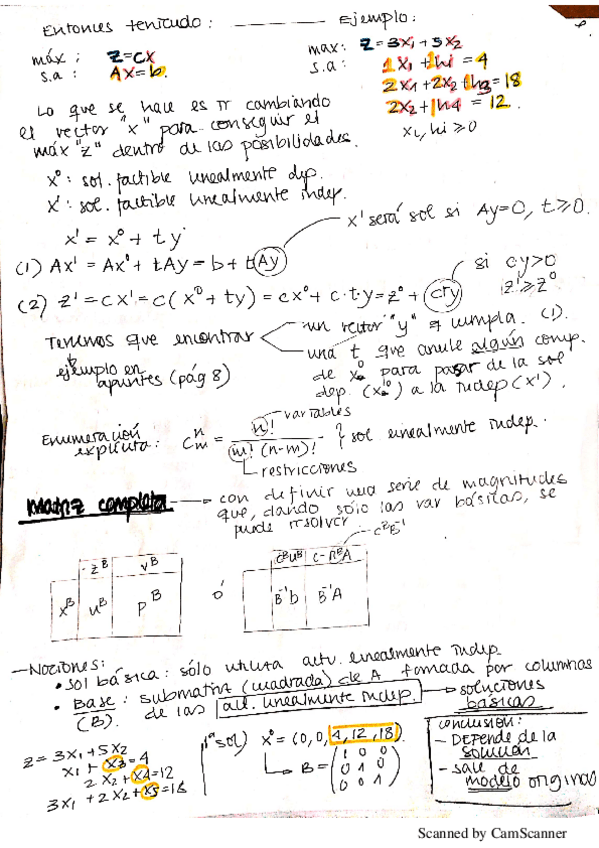 Entonces teniendo: Ejemplo:
máx: Z=CX
s.a: AX=b.
max: Z=3X1+5X2
s.a: 1X1+1h1=4
2X1+2X2+1h3=18
2X2+1h4=12.
X1,hi≥0
Lo que se hace es ir cambiando
el vector "x" para conseguir el
máx "z" dentro de las posibilidades.
x⁰: sol. factible linealmente dep.
x¹: sol. factible linealmente indep.
x¹ = x⁰ + ty
x¹ será sol si Ay=0, t≥0.
(1) Ax¹ = Ax⁰ + tAy = b + tAy
si cy>0
z¹≥z⁰
(2) z¹ = cx¹ = c(x⁰+ty) = cx⁰ + c·t·y = z⁰ + cty
Tenemos que encontrar
un vector "y" q cumpla (1).
una t que anule algún comp.
de x⁰ para pasar de la sol
dep. (x⁰) a la indep (x¹).
ejemplo en
apuntes (pág 8)
variables
Enumeración
explícita: C n m = n! / m!(n-m)! } sol linealmente indep.
restricciones
Matriz completa → con definir una serie de magnitudes
que, dando sólo las var básicas, se
puede resolver.
z^B v^B
x^B u^B p^B
ó
B⁻¹b B⁻¹A
- Nociones:
• sol básica: sólo utiliza act. linealmente indep.
• Base: submatriz (cuadrada) de A formada por columnas
(B). de las act. linealmente indep. → soluciones
básicas
z = 3x1+5x2
x1 + x3 = 4
2x2 + x4 = 12
3x1 + 2x2 + x5 = 18
1ª sol) x⁰ = (0,0,4,12,18)
B = (1 0 0
0 1 0
0 0 1)
Conclusión:
- DEPENDE de la
solución
- sale de
modelo original
Scanned by CamScanner